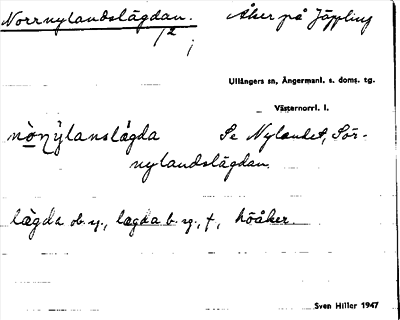 Norrnylandslägdan. Åker på Jäppling
12,
Ullångers sn, Ångermanl. s. doms. tg.
Västernorrl. l.
nònýlanslǻgda Se Nylandet, Sör-
nylandslägdan.
lägda ob. sg., lægda b. sg., f, höåker.
Sven Hiller 1947